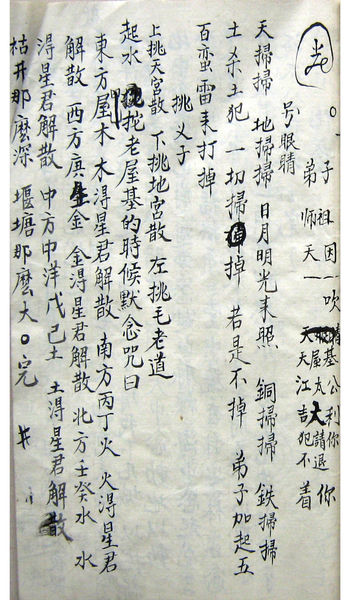 子祖因一吹
弟師天一
号眼睛
天掃掃 地掃掃 日月明光来照 銅掃掃 鉄掃掃
土杀土犯 一切掃掉 若是不掉 弟子加起五
百蛮雷来打掉
挑义子
上挑天宫散 下挑地宫散 左挑毛老道
起水 挖老屋基的時候默念咒曰
東方屋木 木得星君解散 南方丙丁火 火得星君
解散 西方庚金 金得星君解散 北方壬癸水 水
得星君解散 中方中洋戊己土 土得星君解散
枯井那麽深 堰塘那麽大 ○完 井